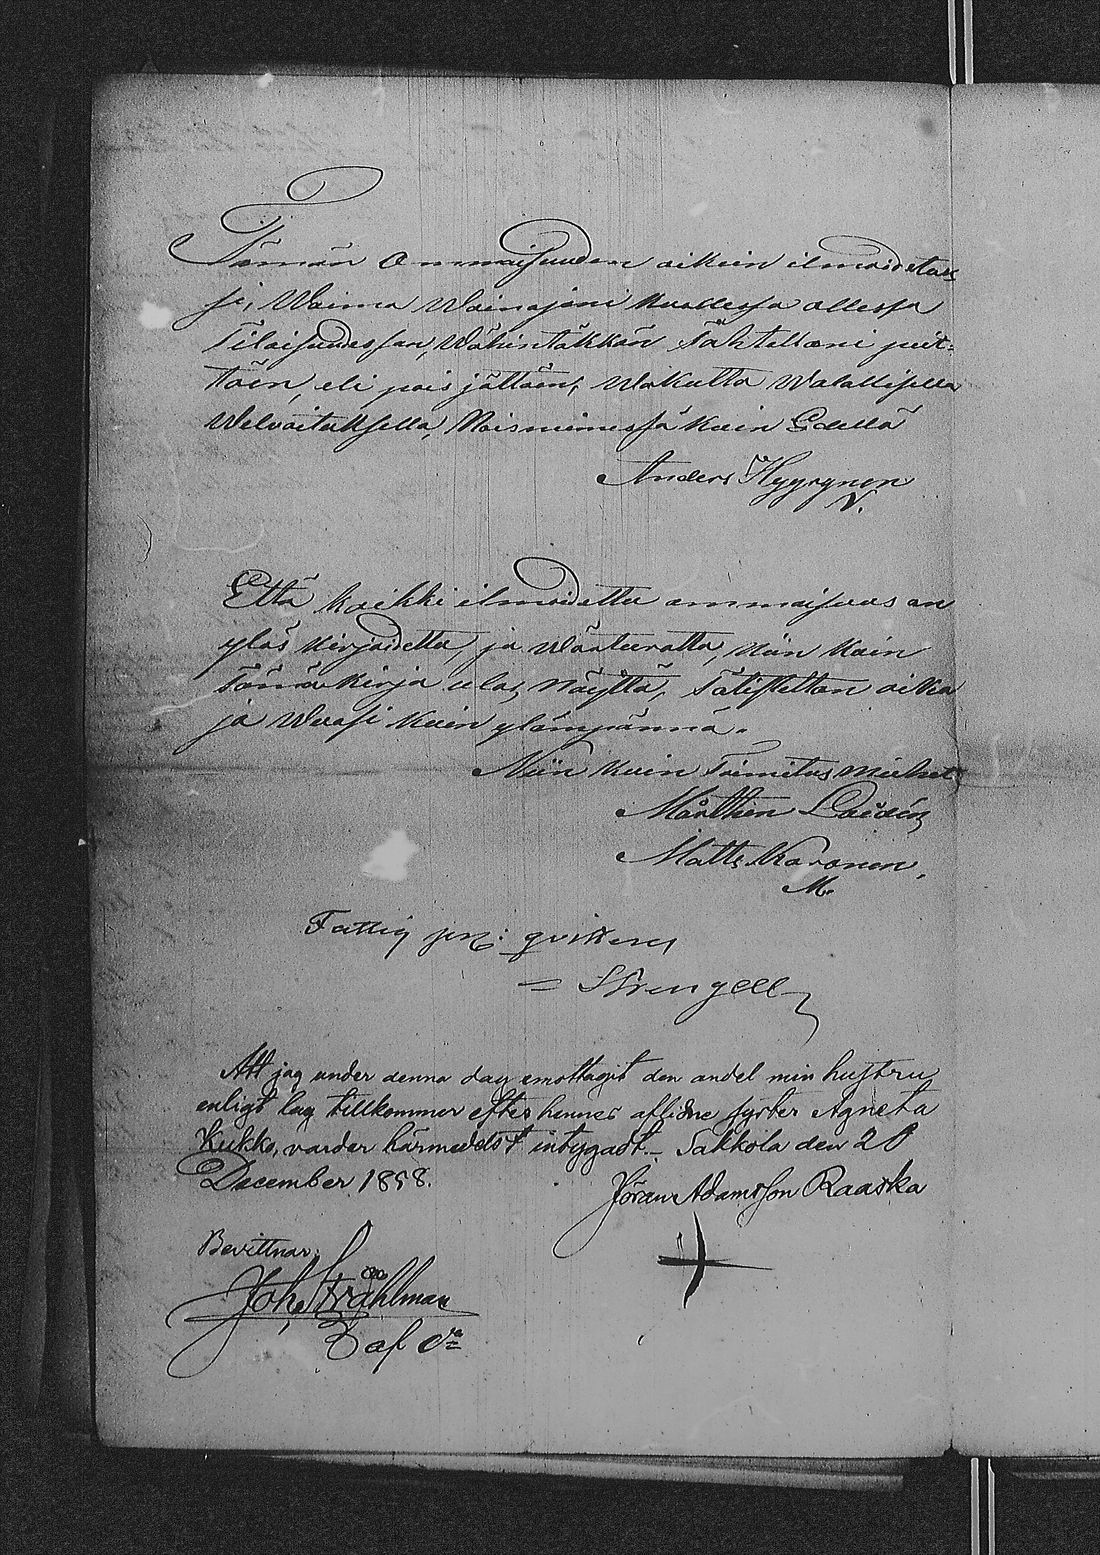 Tämän Ommaisuuden oikein ilmoidetux
si, Waimo Wainajani kuollessa ollessa
Tilaisuudessan, Wähintäkkän Tähteltäni puit-
toin, eli pois jättäin, Wakutta Walallisella
Welvoituksella, Nois nimessä kuin Edellä
Anders Hyyrynen
N.
Että kaikki ilmoidettu ommaisuus on
ylös kirjoidettu, ja Wärteeratta, niin kuin
Tämä kirja ulos näyttä, Tätistettan aika
ja Wuosi kuin ylämpännä.
Niin kuin Toimitus miehet
Mårthen Loidin
Matts Karonen,
M.
Fattig prc: qvitteras
= Strengell
Att jag under denna dag emottagit den andel min hustru
enligt lag tillkommer efter hennes aflidne syster Agneta
Kukko, varder härmedelst intygadt. Sakkola den 28
December 1858.
Jöran Adamsson Raaska
Bevittnar:
Joh. Ståhlman